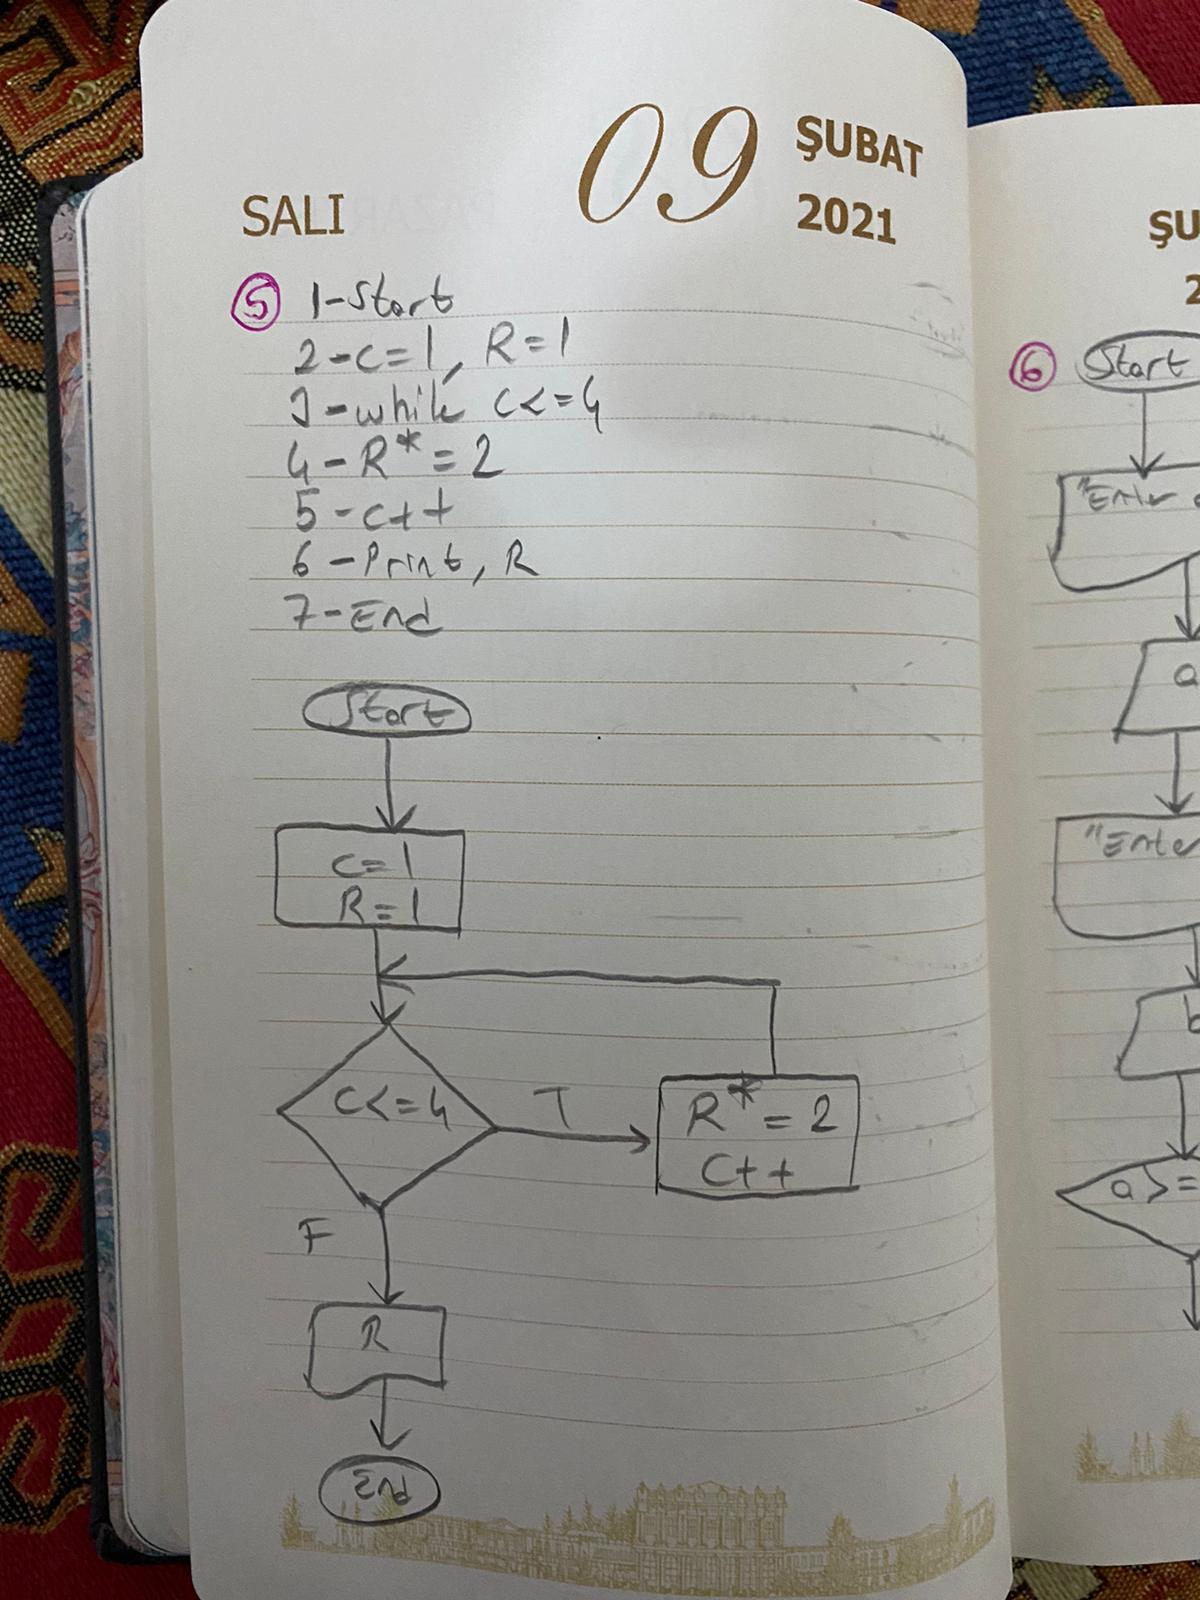 SALI
09
ŞUBAT
2021
5 1-Start
2-c=1, R=1
3-while c<=4
4-R*=2
5-c++
6-Print, R
7-End
Start
c=1
R=1
c<=4
T
R*=2
c++
F
R
End
6 Start
"Enter
a
"Enter
b
a>=